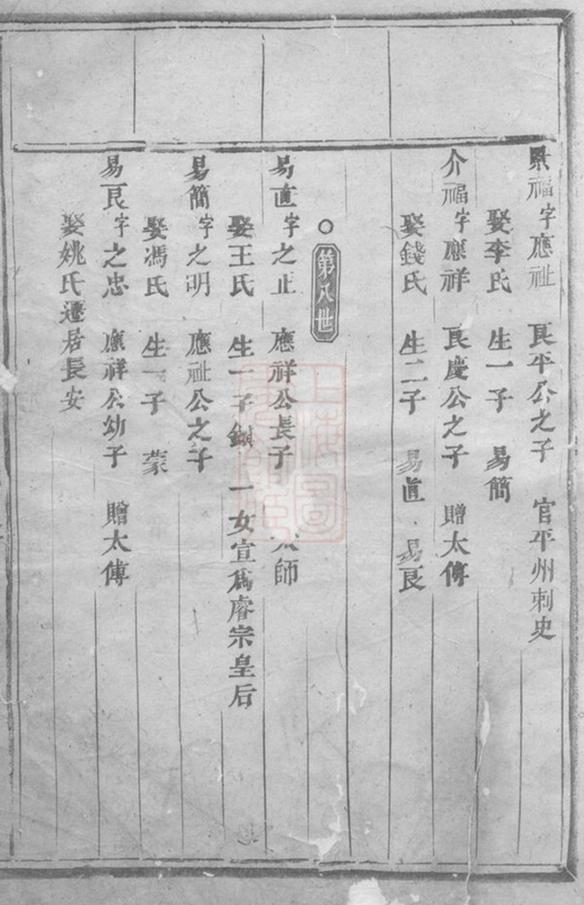 景福字應祉 良平公之子 官平州刺史
娶李氏 生一子 易簡
介福字應祥 良慶公之子 贈太傅
娶錢氏 生二子 易直 易良
第八世
易直字之正 應祥公長子 太師
娶王氏 生一子 一女宣為睿宗皇后
易簡字之明 應祉公之子
娶馮氏 生一子 蒙
易良字之忠 應祥公幼子 贈太傅
娶姚氏遷居長安